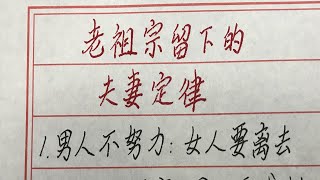 老祖宗留下的
夫妻定律
1.男人不努力:女人要离去